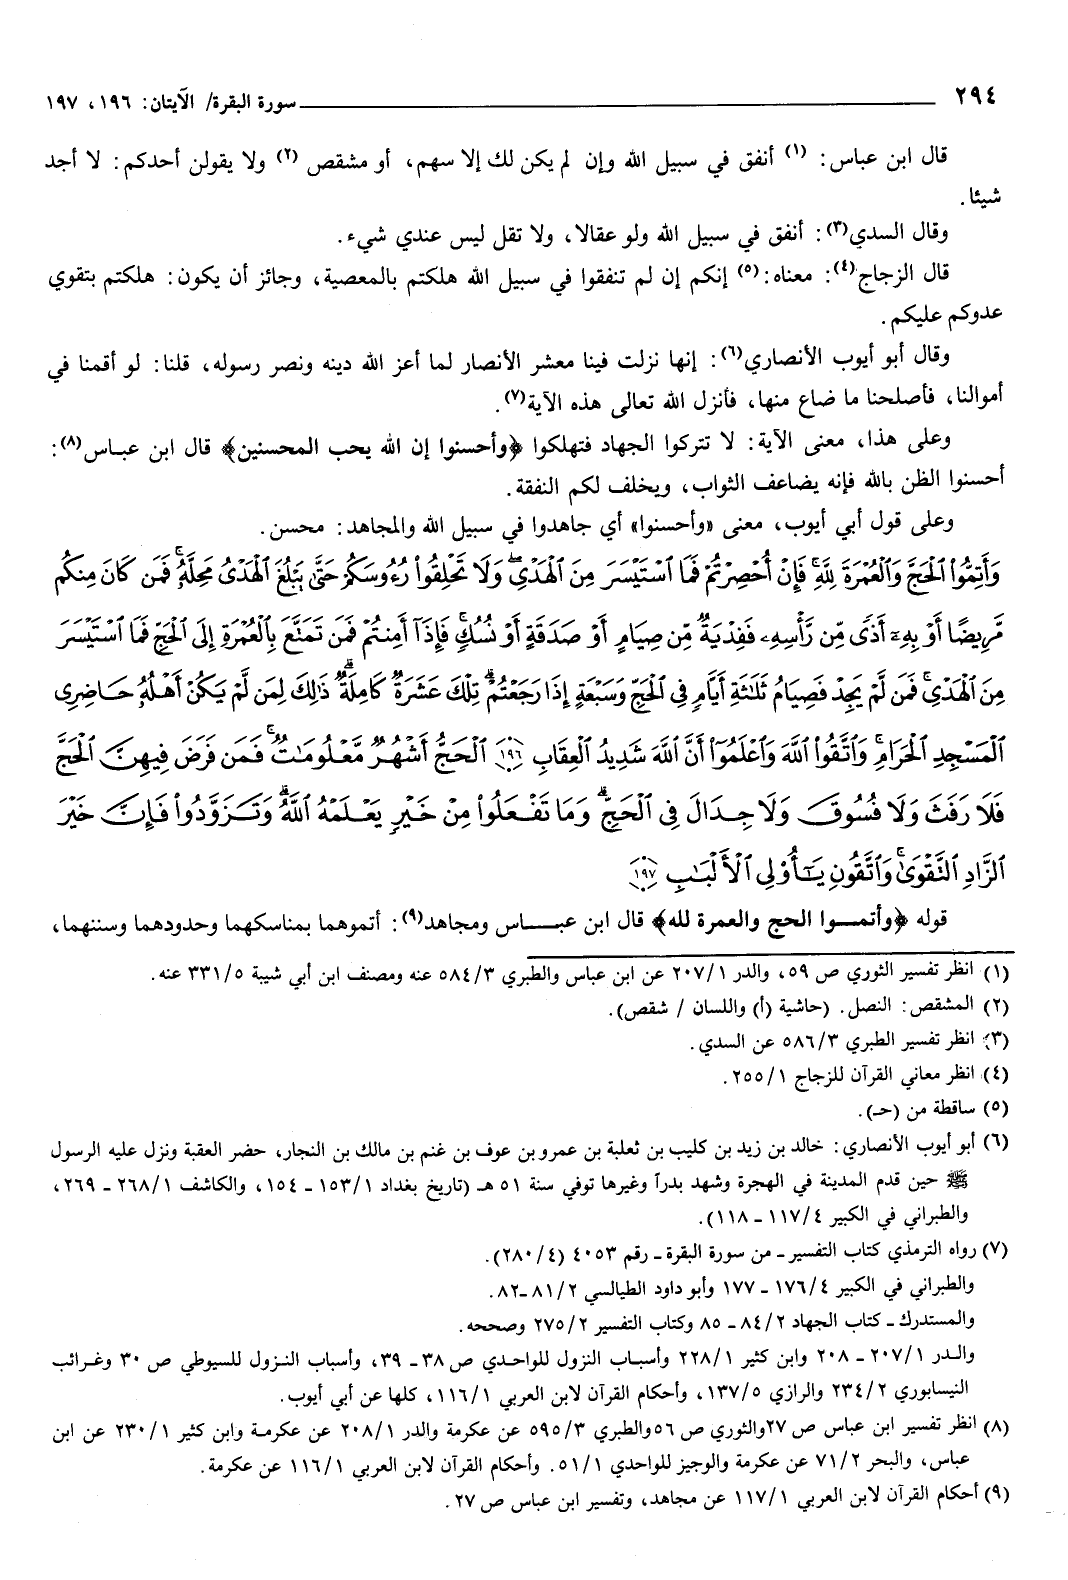 ٢٩٤ سورة البقرة/ الآيتان: ١٩٦، ١٩٧
قال ابن عباس: (١) أنفق في سبيل الله وإن لم يكن لك إلا سهم، أو مشقص (٢) ولا يقولن أحدكم: لا أجد
شيئا.
وقال السدي(٣): أنفق في سبيل الله ولو عقالا، ولا تقل ليس عندي شيء.
قال الزجاج(٤): معناه:(٥) إنكم إن لم تنفقوا في سبيل الله هلكتم بالمعصية، وجائز أن يكون: هلكتم بتقوي
عدوكم عليكم.
وقال أبو أيوب الأنصاري(٦): إنها نزلت فينا معشر الأنصار لما أعز الله دينه ونصر رسوله، قلنا: لو أقمنا في
أموالنا، فأصلحنا ما ضاع منها، فأنزل الله تعالى هذه الآية(٧).
وعلى هذا، معنى الآية: لا تتركوا الجهاد فتهلكوا ﴿وأحسنوا إن الله يحب المحسنين﴾ قال ابن عباس(٨):
أحسنوا الظن بالله فإنه يضاعف الثواب، ويخلف لكم النفقة.
وعلى قول أبي أيوب، معنى «وأحسنوا» أي جاهدوا في سبيل الله والمجاهد: محسن.
وَأَتِمُّواْ ٱلْحَجَّ وَٱلْعُمْرَةَ لِلَّهِۚ فَإِنْ أُحْصِرْتُمْ فَمَا ٱسْتَيْسَرَ مِنَ ٱلْهَدْيِۖ وَلَا تَحْلِقُواْ رُءُوسَكُمْ حَتَّىٰ يَبْلُغَ ٱلْهَدْيُ مَحِلَّهُۥۚ فَمَن كَانَ مِنكُم
مَّرِيضًا أَوْ بِهِۦٓ أَذًى مِّن رَّأْسِهِۦ فَفِدْيَةٌ مِّن صِيَامٍ أَوْ صَدَقَةٍ أَوْ نُسُكٍۚ فَإِذَآ أَمِنتُمْ فَمَن تَمَتَّعَ بِٱلْعُمْرَةِ إِلَى ٱلْحَجِّ فَمَا ٱسْتَيْسَرَ
مِنَ ٱلْهَدْيِۚ فَمَن لَّمْ يَجِدْ فَصِيَامُ ثَلَٰثَةِ أَيَّامٍ فِي ٱلْحَجِّ وَسَبْعَةٍ إِذَا رَجَعْتُمْۗ تِلْكَ عَشَرَةٌ كَامِلَةٌۗ ذَٰلِكَ لِمَن لَّمْ يَكُنْ أَهْلُهُۥ حَاضِرِي
ٱلْمَسْجِدِ ٱلْحَرَامِۚ وَٱتَّقُواْ ٱللَّهَ وَٱعْلَمُوٓاْ أَنَّ ٱللَّهَ شَدِيدُ ٱلْعِقَابِ ١٩٦ ٱلْحَجُّ أَشْهُرٌ مَّعْلُومَٰتٌۚ فَمَن فَرَضَ فِيهِنَّ ٱلْحَجَّ
فَلَا رَفَثَ وَلَا فُسُوقَ وَلَا جِدَالَ فِي ٱلْحَجِّۗ وَمَا تَفْعَلُواْ مِنْ خَيْرٍ يَعْلَمْهُ ٱللَّهُۗ وَتَزَوَّدُواْ فَإِنَّ خَيْرَ
ٱلزَّادِ ٱلتَّقْوَىٰۚ وَٱتَّقُونِ يَٰٓأُوْلِي ٱلْأَلْبَٰبِ ١٩٧
قوله ﴿وأتموا الحج والعمرة لله﴾ قال ابن عباس ومجاهد(٩): أتموهما بمناسكهما وحدودهما وسننهما،
(١) انظر تفسير الثوري ص ٥٩، والدر ٢٠٧/١ عن ابن عباس والطبري ٥٨٤/٣ عنه ومصنف ابن أبي شيبة ٣٣١/٥ عنه.
(٢) المشقص: النصل. (حاشية (أ) واللسان / شقص).
(٣) انظر تفسير الطبري ٥٨٦/٣ عن السدي.
(٤) انظر معاني القرآن للزجاج ٢٥٥/١.
(٥) ساقطة من (حـ).
(٦) أبو أيوب الأنصاري: خالد بن زيد بن كليب بن ثعلبة بن عمرو بن عوف بن غنم بن مالك بن النجار، حضر العقبة ونزل عليه الرسول
ﷺ حين قدم المدينة في الهجرة وشهد بدراً وغيرها توفي سنة ٥١ هـ (تاريخ بغداد ١٥٣/١ ـ ١٥٤، والكاشف ٢٦٨/١ ـ ٢٦٩،
والطبراني في الكبير ١١٧/٤ ـ ١١٨).
(٧) رواه الترمذي كتاب التفسير ـ من سورة البقرة ـ رقم ٤٠٥٣ (٢٨٠/٤).
والطبراني في الكبير ١٧٦/٤ ـ ١٧٧ وأبو داود الطيالسي ٨١/٢ ـ ٨٢.
والمستدرك ـ كتاب الجهاد ٨٤/٢ ـ ٨٥ وكتاب التفسير ٢٧٥/٢ وصححه.
والدر ٢٠٧/١ ـ ٢٠٨ وابن كثير ٢٢٨/١ وأسباب النزول للواحدي ص ٣٨ ـ ٣٩، وأسباب النزول للسيوطي ص ٣٠ وغرائب
النيسابوري ٢٣٤/٢ والرازي ١٣٧/٥، وأحكام القرآن لابن العربي ١١٦/١، كلها عن أبي أيوب.
(٨) انظر تفسير ابن عباس ص ٢٧ والثوري ص ٥٦ والطبري ٥٩٥/٣ عن عكرمة والدر ٢٠٨/١ عن عكرمة وابن كثير ٢٣٠/١ عن ابن
عباس، والبحر ٧١/٢ عن عكرمة والوجيز للواحدي ٥١/١. وأحكام القرآن لابن العربي ١١٦/١ عن عكرمة.
(٩) أحكام القرآن لابن العربي ١١٧/١ عن مجاهد، وتفسير ابن عباس ص ٢٧.